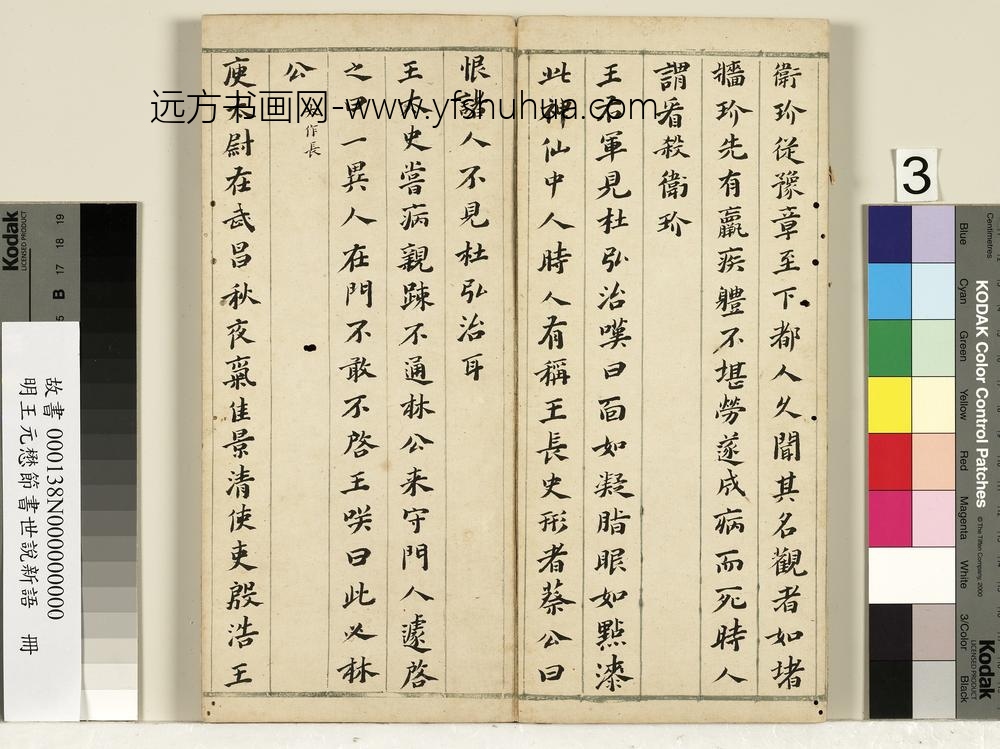 衛玠從豫章至下都人久聞其名觀者如堵
牆玠先有羸疾體不堪勞遂成病而死時人
謂看殺衛玠
王右軍見杜弘治嘆曰面如凝脂眼如點漆
此神仙中人時人有稱王長史形者蔡公曰
恨諸人不見杜弘治耳
王太史嘗病親踈不通林公来守門人遽啓
之曰一異人在門不敢不啓王咲曰此必林
公
作長
庾太尉在武昌秋夜氣佳景清使吏殷浩王
远方书画网-www.yfshuhua.com
3
故書 000138N000000000
明王元懋節書世說新語 冊
Kodak
LICENSED PRODUCT
B 17 18 19
KODAK Color Control Patches
© The Tiffen Company, 2000
Centimetres
Blue
Cyan
Green
Yellow
Red
Magenta
White
3/Color
Black
Kodak
LICENSED PRODUCT